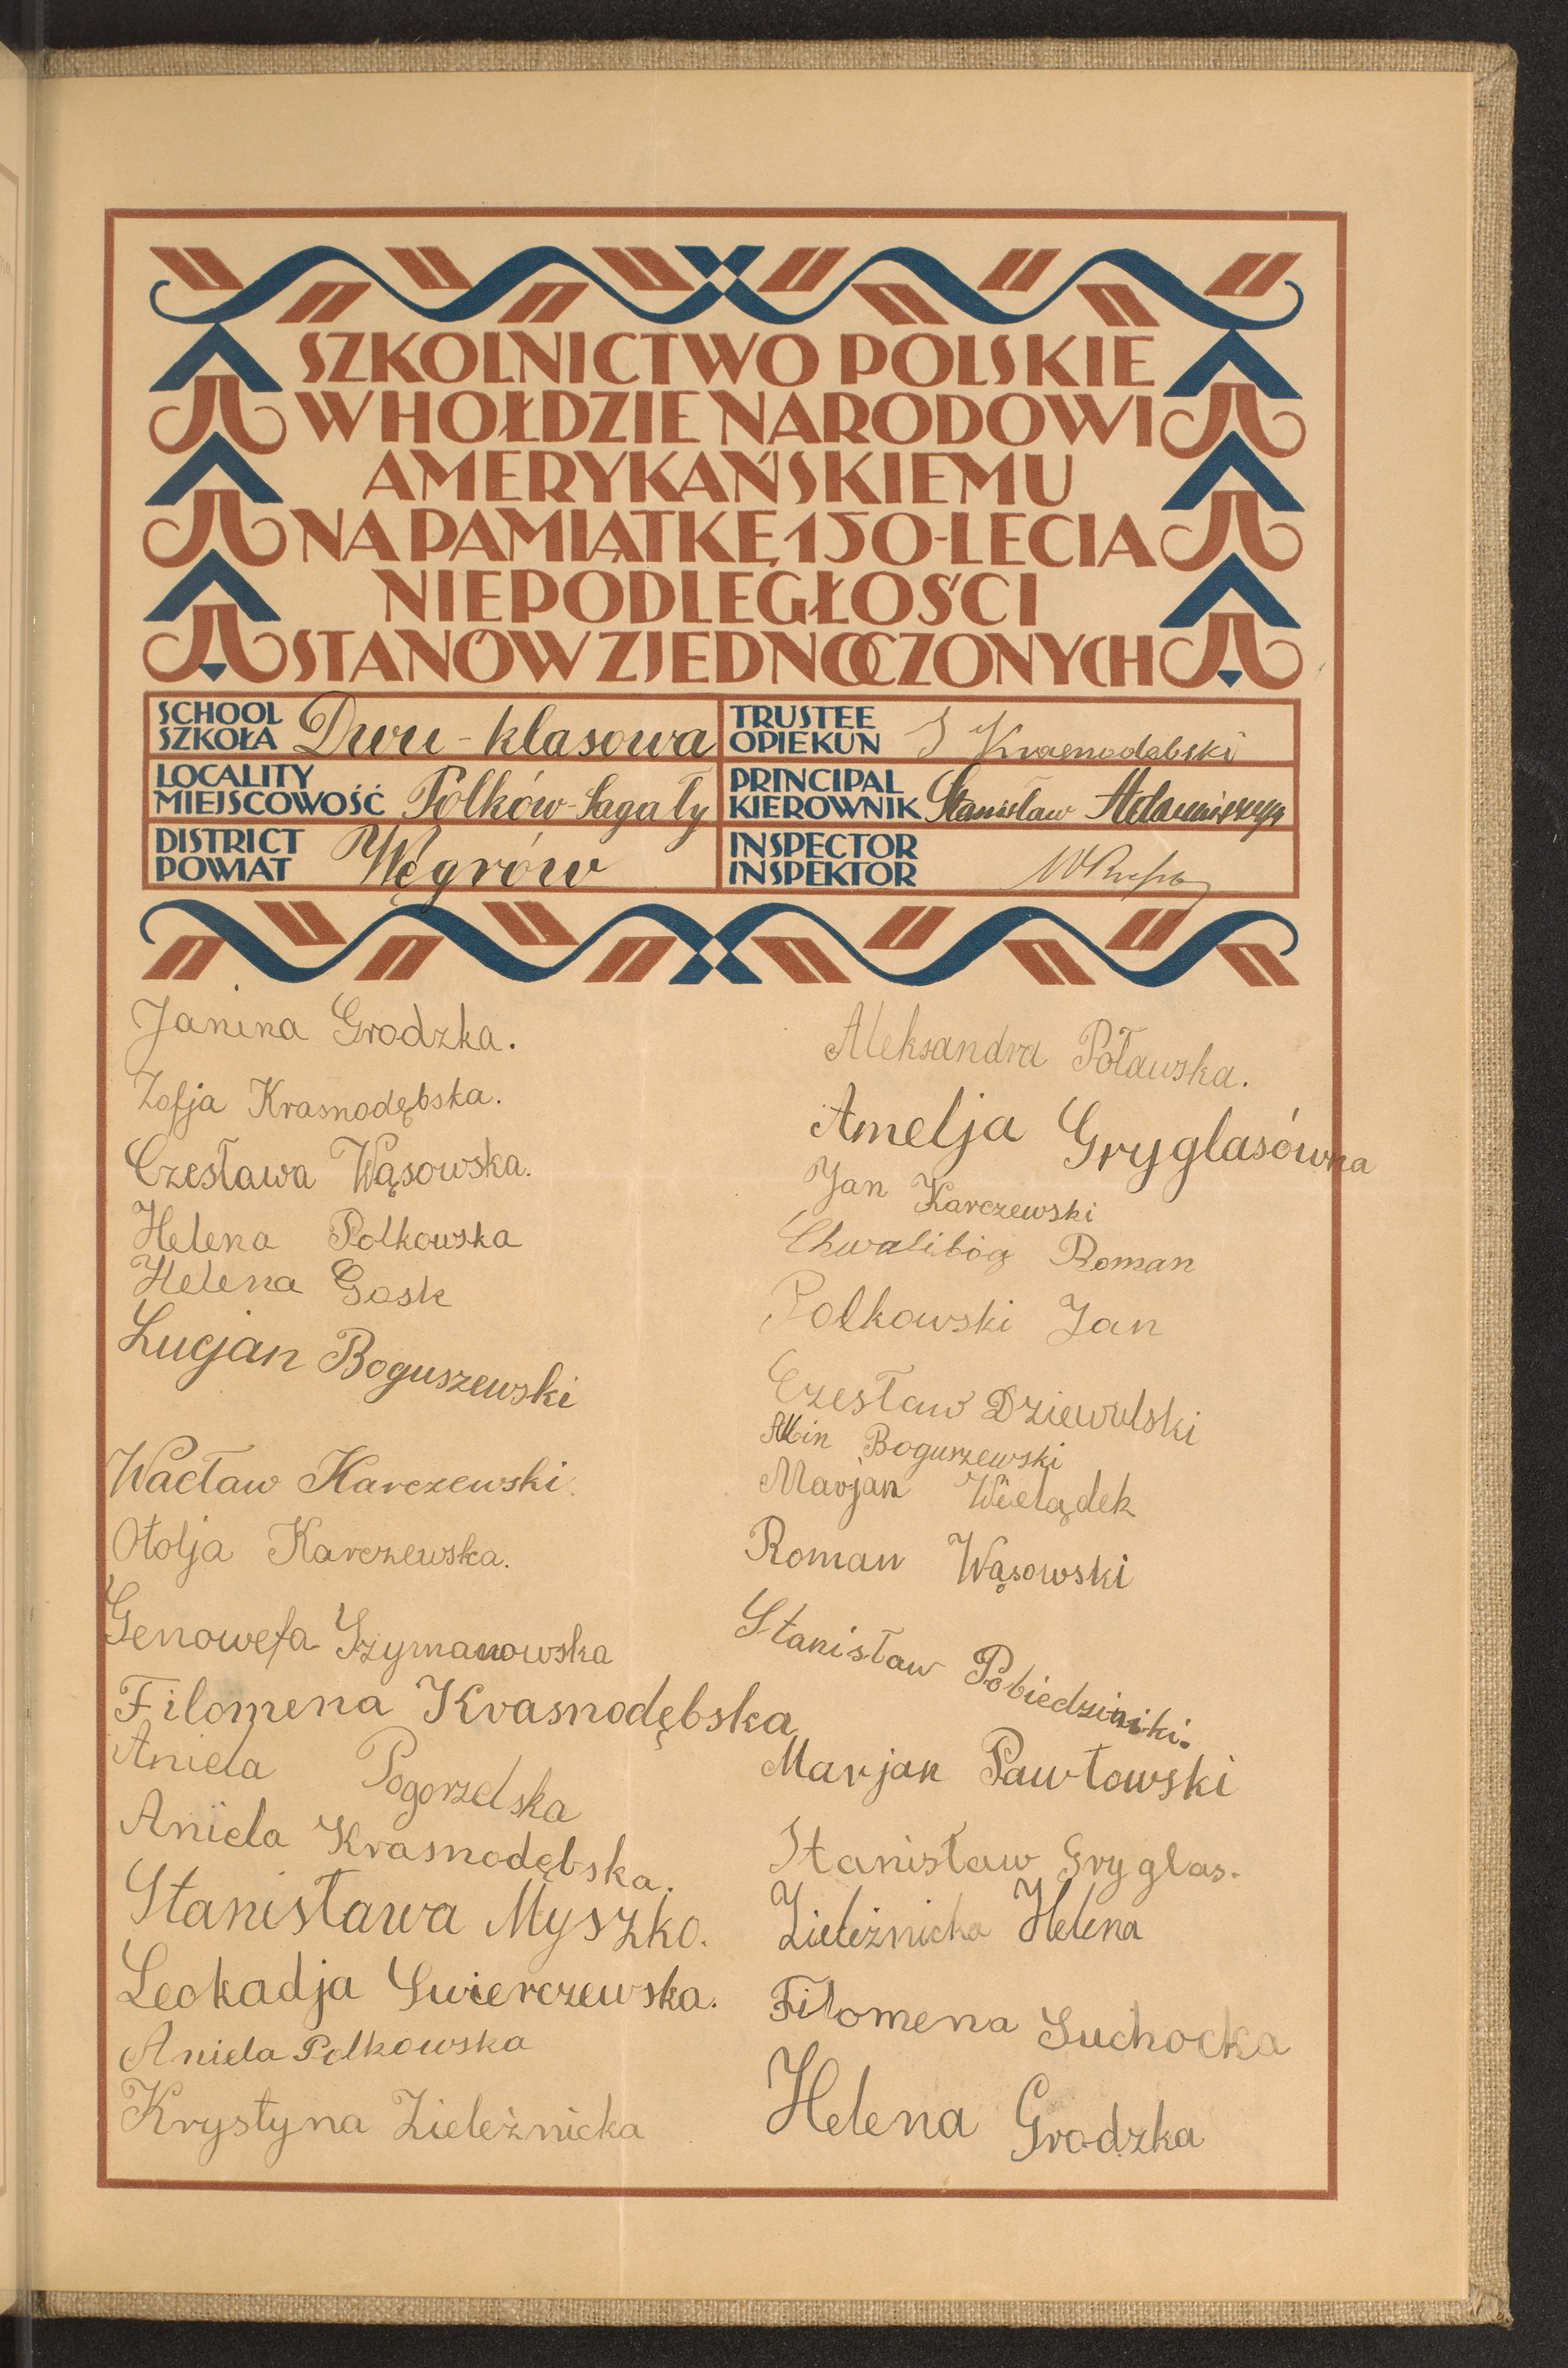 SZKOLNICTWO POLSKIE
W HOŁDZIE NARODOWI
AMERYKAŃSKIEMU
NA PAMIĄTKĘ 150-LECIA
NIEPODLEGŁOŚCI
STANÓW ZJEDNOCZONYCH
SCHOOL
SZKOŁA Dwu-klasowa
LOCALITY
MIEJSCOWOŚĆ Polków-Sagały
DISTRICT
POWIAT Węgrów
TRUSTEE
OPIEKUN J Krasnodębski
PRINCIPAL
KIEROWNIK Stanisław
INSPECTOR
INSPEKTOR
Janina Grodzka.
Zofja Krasnodębska.
Czesława Wąsowska.
Helena Polkowska
Helena Gosk
Lucjan Boguszewski
Wacław Karczewski.
Otolja Karczewska.
Genowefa Szymanowska
Filomena Krasnodębska
Aniela Pogorzelska
Aniela Krasnodębska.
Stanisława Myszko.
Leokadja Swierczewska.
Aniela Polkowska
Krystyna Zieleźnicka
Aleksandra Połauska.
Amelja Gryglasówna
Jan Karczewski
Chwalibóg Roman
Polkowski Jan
Czesław Dziewulski
Albin Boguszewski
Marjan Wielądek
Roman Wąsowski
Stanisław Pobiedziński.
Marjan Pawłowski
Stanisław Gryglas.
Zieleźnicka Helena
Filomena Suchocka
Helena Grodzka